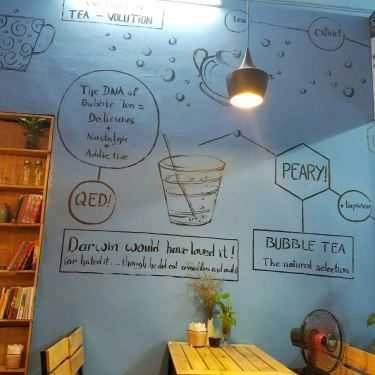 TEA - VOLUTION
The DNA of
Bubble Tea =
Delicious
+
Nostalgic
+
Addictive
QED!
PEARY!
Darwin would have loved it!
(or hated it ... though he did eat armadillos and owls)
BUBBLE TEA
The natural selection